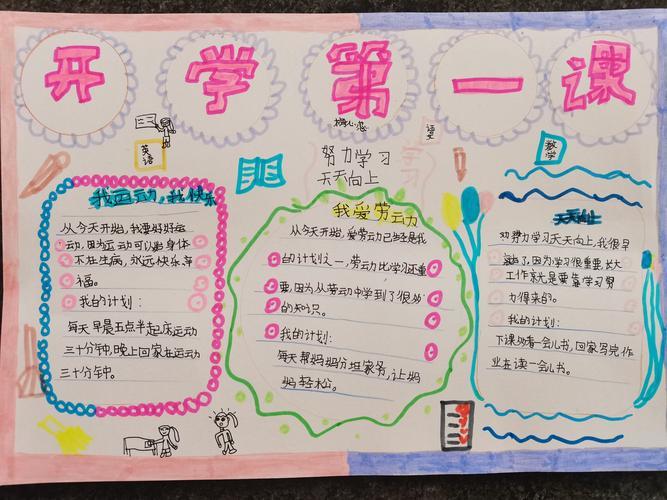 开学第一课
努力学习
天天向上
英语
语文
数学
我运动，我快乐
从今天开始，我要好好运
动，因为运动可以让身体
不在生病，永远快乐幸
福。
我的计划：
每天早晨五点半起床运动
三十分钟，晚上回家在运动
三十分钟。
我爱劳动
从今天开始，爱劳动已经是我
的计划之一，劳动比学习还重
要，因为从劳动中学到了很多
的知识。
我的计划：
每天帮妈妈分担家务，让妈
妈轻松。
天天向上
努力学习天天向上，我很早
因为学习很重要，长大
工作就是要靠学习努
力得来的。
我的计划：
下课看一会儿书，回家写完作
业在读一会儿书。